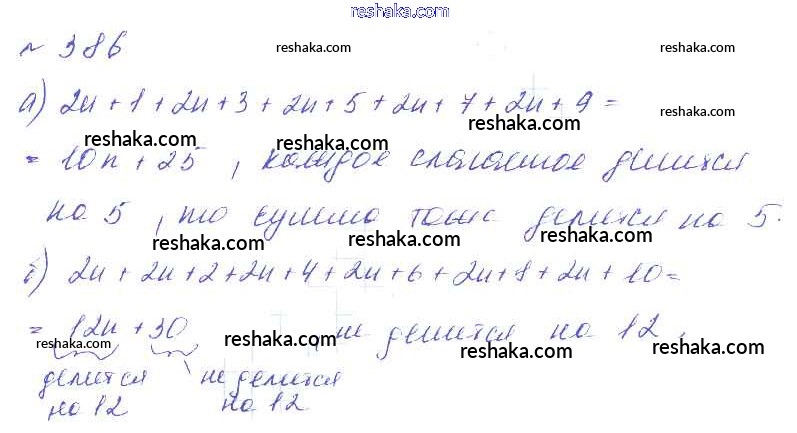 www.reshaka.com
№ 386
reshaka.com reshaka.com
а) 2n + 1 + 2n + 3 + 2n + 5 + 2n + 7 + 2n + 9 =
reshaka.com
reshaka.com reshaka.com
= 10n + 25, каждое слагаемое делится
reshaka.com reshaka.com reshaka.com
на 5, то сумма также делится на 5.
reshaka.com reshaka.com reshaka.com
б) 2n + 2n + 2 + 2n + 4 + 2n + 6 + 2n + 8 + 2n + 10 =
= 12n + 30, не делится на 12.
reshaka.com reshaka.com reshaka.com reshaka.com
делится не делится
на 12 на 12